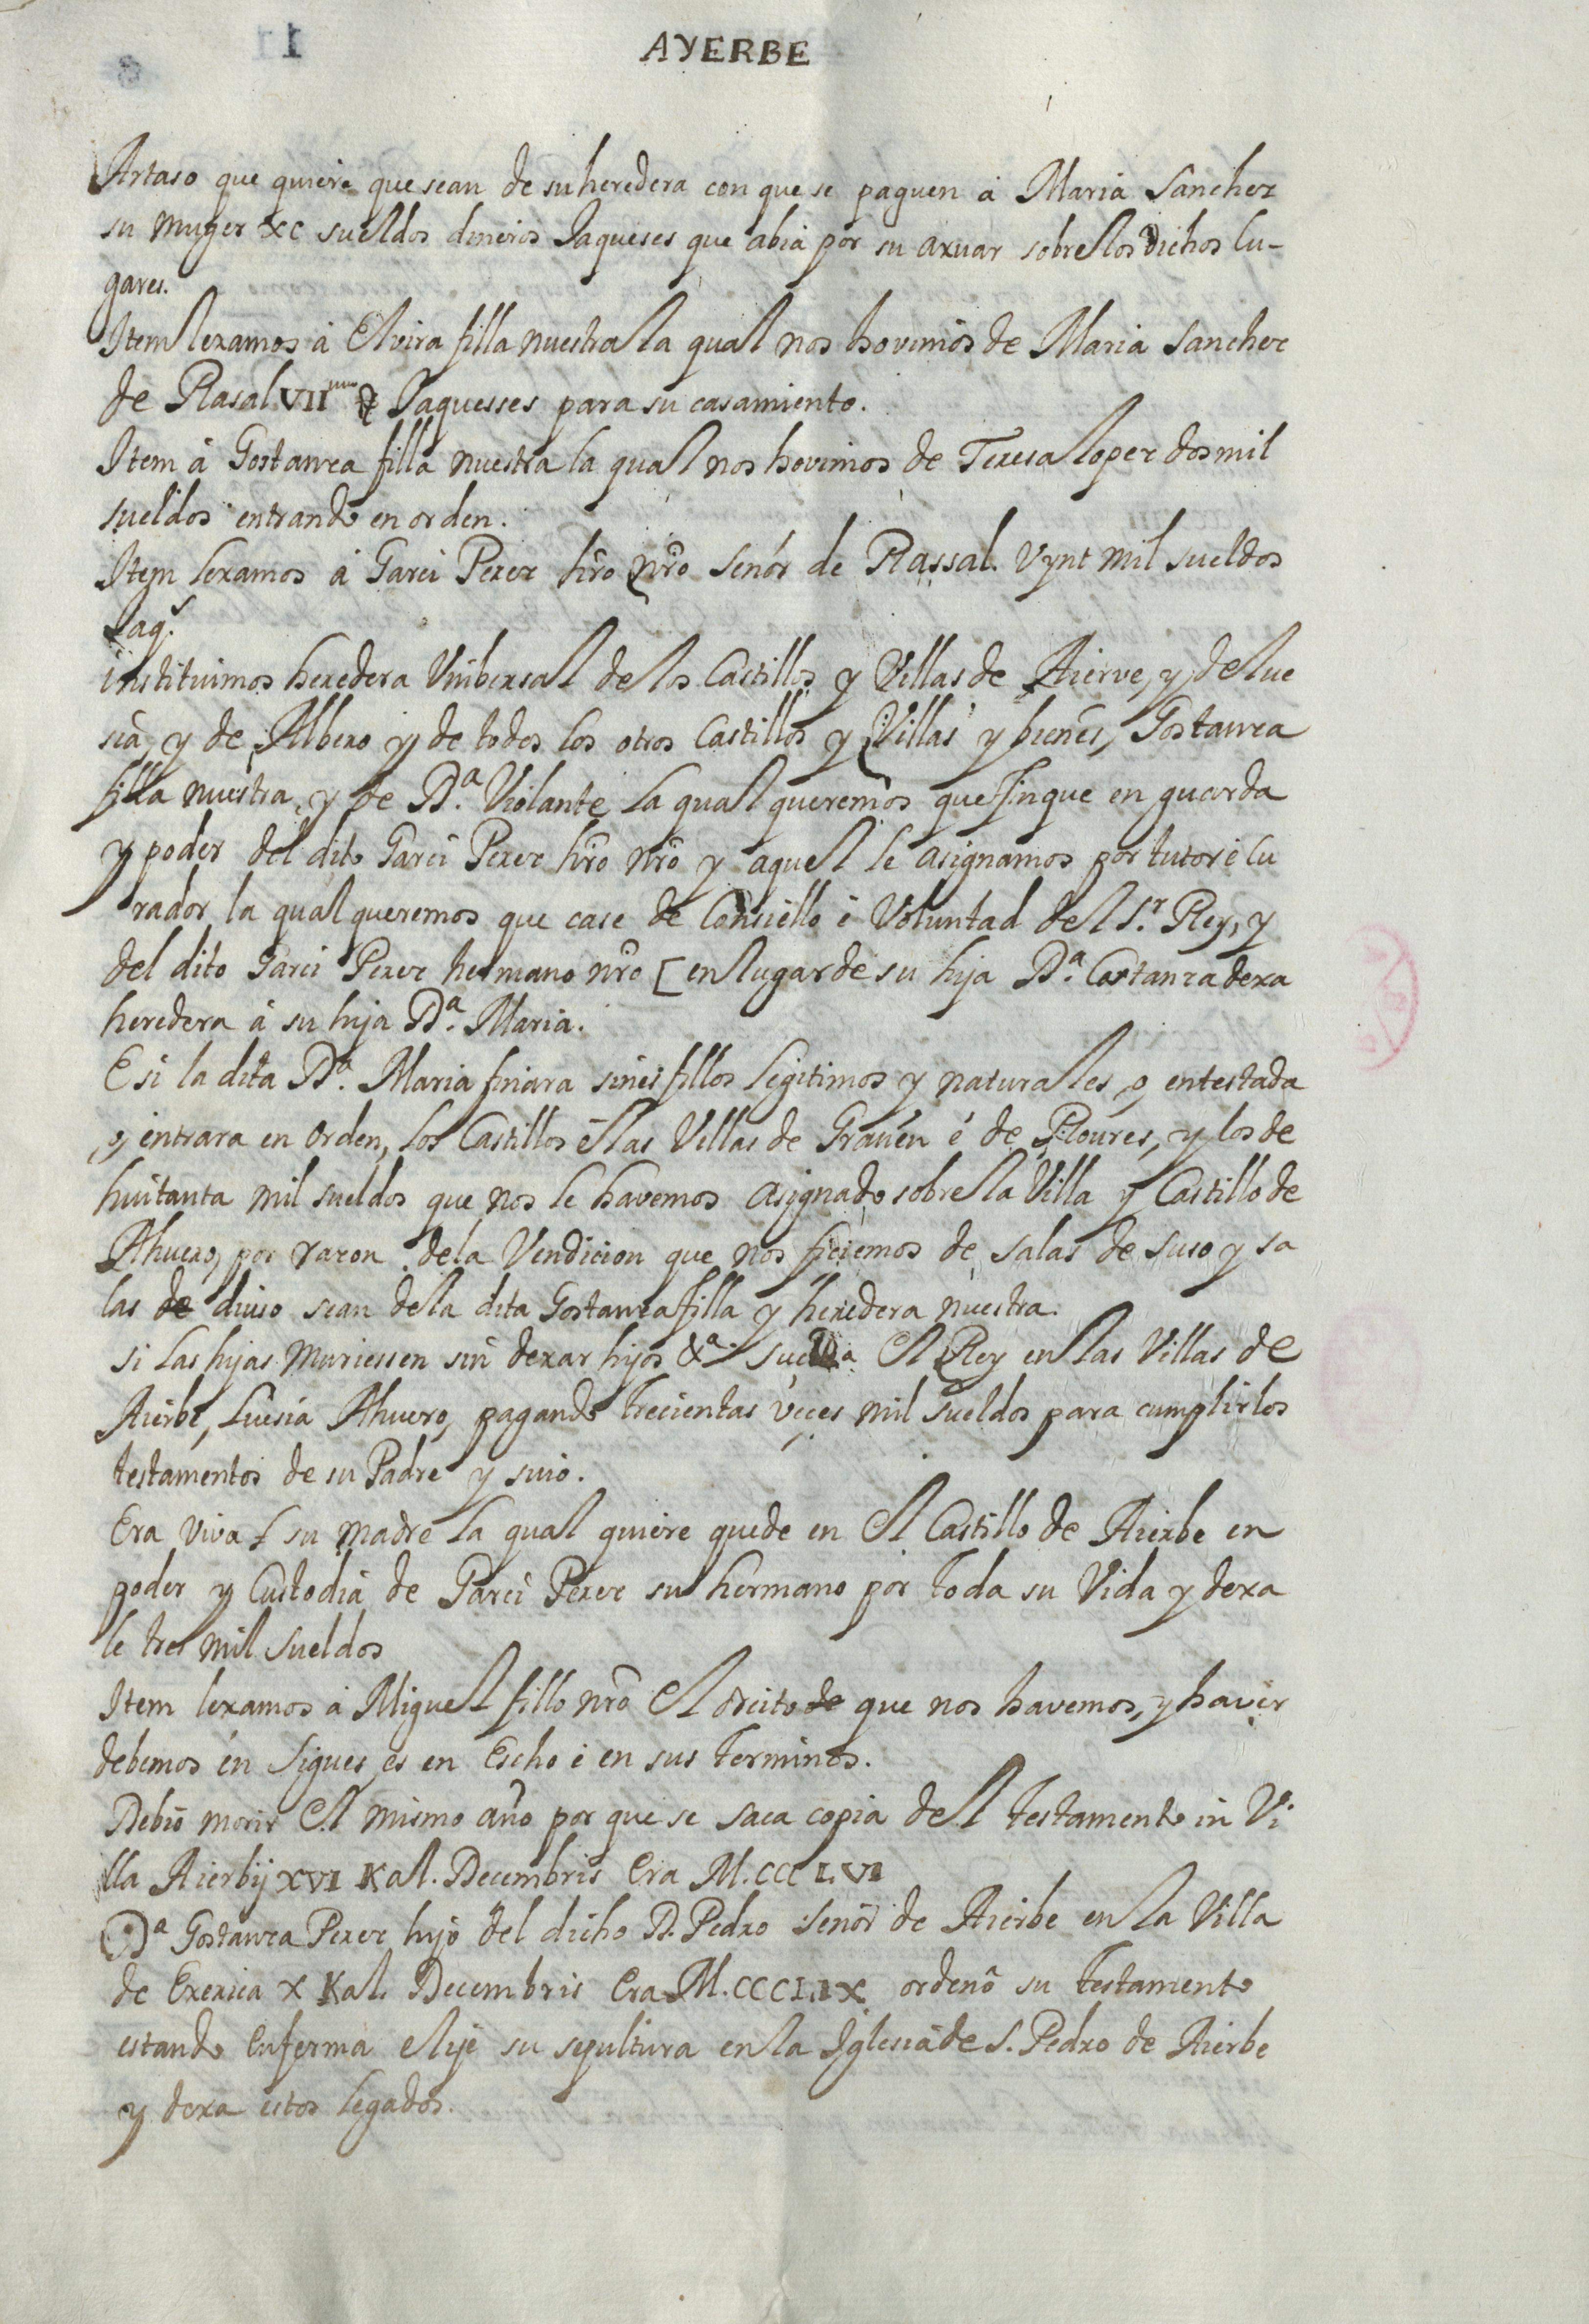 AYERBE
Artaso que quiere que sean de su heredera con que se paguen á Maria Sanchez
su muger xc sueldos dineros Jaqueses que abia por su axuar sobre los dichos lu-
gares.
Item lexamos á Elvira filla nuestra la qual nos hovimos de Maria Sanchez
de Rasal VII Jaquesses para su casamiento.
Item á Gostanza filla nuestra la qual nos hovimos de Teresa Lopez dos mil
sueldos entrando en orden.
Item lexamos á Garci Perez hrõ nrõ Señor de Rassal. Vynt mil sueldos
Jaq.s
instituimos heredera Vnibersal de los Castillos y Villas de Aierve, y de Lue
sia, y de Albero y de todos los otros Castillos y Villas y bienes, Gostanza
filla nuestra, y de D.ª Violante la qual queremos que finque en guarda
y poder del dito Garci Perez hrõ nrõ y aquel le asignamos por tutor é Cu
rador, la qual queremos que case de Consiello é Voluntad del S.r Rey, y
del dito Garci Perez hermano nrõ [en lugar de su hija D.ª Costanza dexa
heredera á su hija D.ª Maria.
E si la dita D.ª Maria finara sines fillos legitimos y naturales, o, entestada
o, entrara en Orden, los Castillos é las Villas de Grauen é de Ploures, y los de
huitanta mil sueldos que nos le havemos asignado sobre la Villa y Castillo de
Ahuero, por razon de la Vendicion que nos ficiemos de Salas de suso y sa
las de diuso sean de la dita Gostanza filla y heredera nuestra.
Si las hijas muriessen sin dexar hijos &ª. El Rey en las Villas de
Aierbe, Luesia Ahuero, pagando trecientas veces mil sueldos para cumplir los
testamentos de su Padre y suio.
Era viva su madre la qual quiere quede en El Castillo de Aierbe en
poder y Custodia de Garci Perez su hermano por toda su Vida y dexa
le tres mil Sueldos
Item lexamos á Miguel fillo nrõ El dreito de que nos havemos, y haver
debemos en Sigues es en Escho é en sus terminos.
Debió morir El mismo año por que se saca copia del testamento in Vi
lla Aierbij XVI Kal. Decembris Era M.CCC L.VI
D.ª Gostanza Perez hijo del dicho D. Pedro Señor de Aierbe en la Villa
de Exerica X Kal. Decembris Era M.CCCLIX ordenó su testamento
estando enferma elije su sepultura en la Iglesia de S. Pedro de Aierbe
y dexa estos legados.